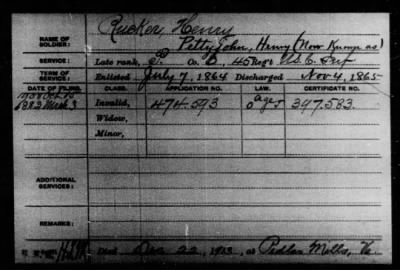 Rucker, Henry
NAME OF SOLDIER: Pettyjohn, Henry (Now Known as)
SERVICE: Late rank, Co. D, 45 Reg't U.S.C. Inf
TERM OF SERVICE: Enlisted July 7, 1864 Discharged Nov 4, 1865
DATE OF FILING. CLASS. APPLICATION NO. LAW. CERTIFICATE NO.
1883 Mch 3 Invalid, 474.593 397.583
Widow,
Minor,
ADDITIONAL SERVICES:
REMARKS:
Died Dec 22, 1913, at Pedlar Mills, Va